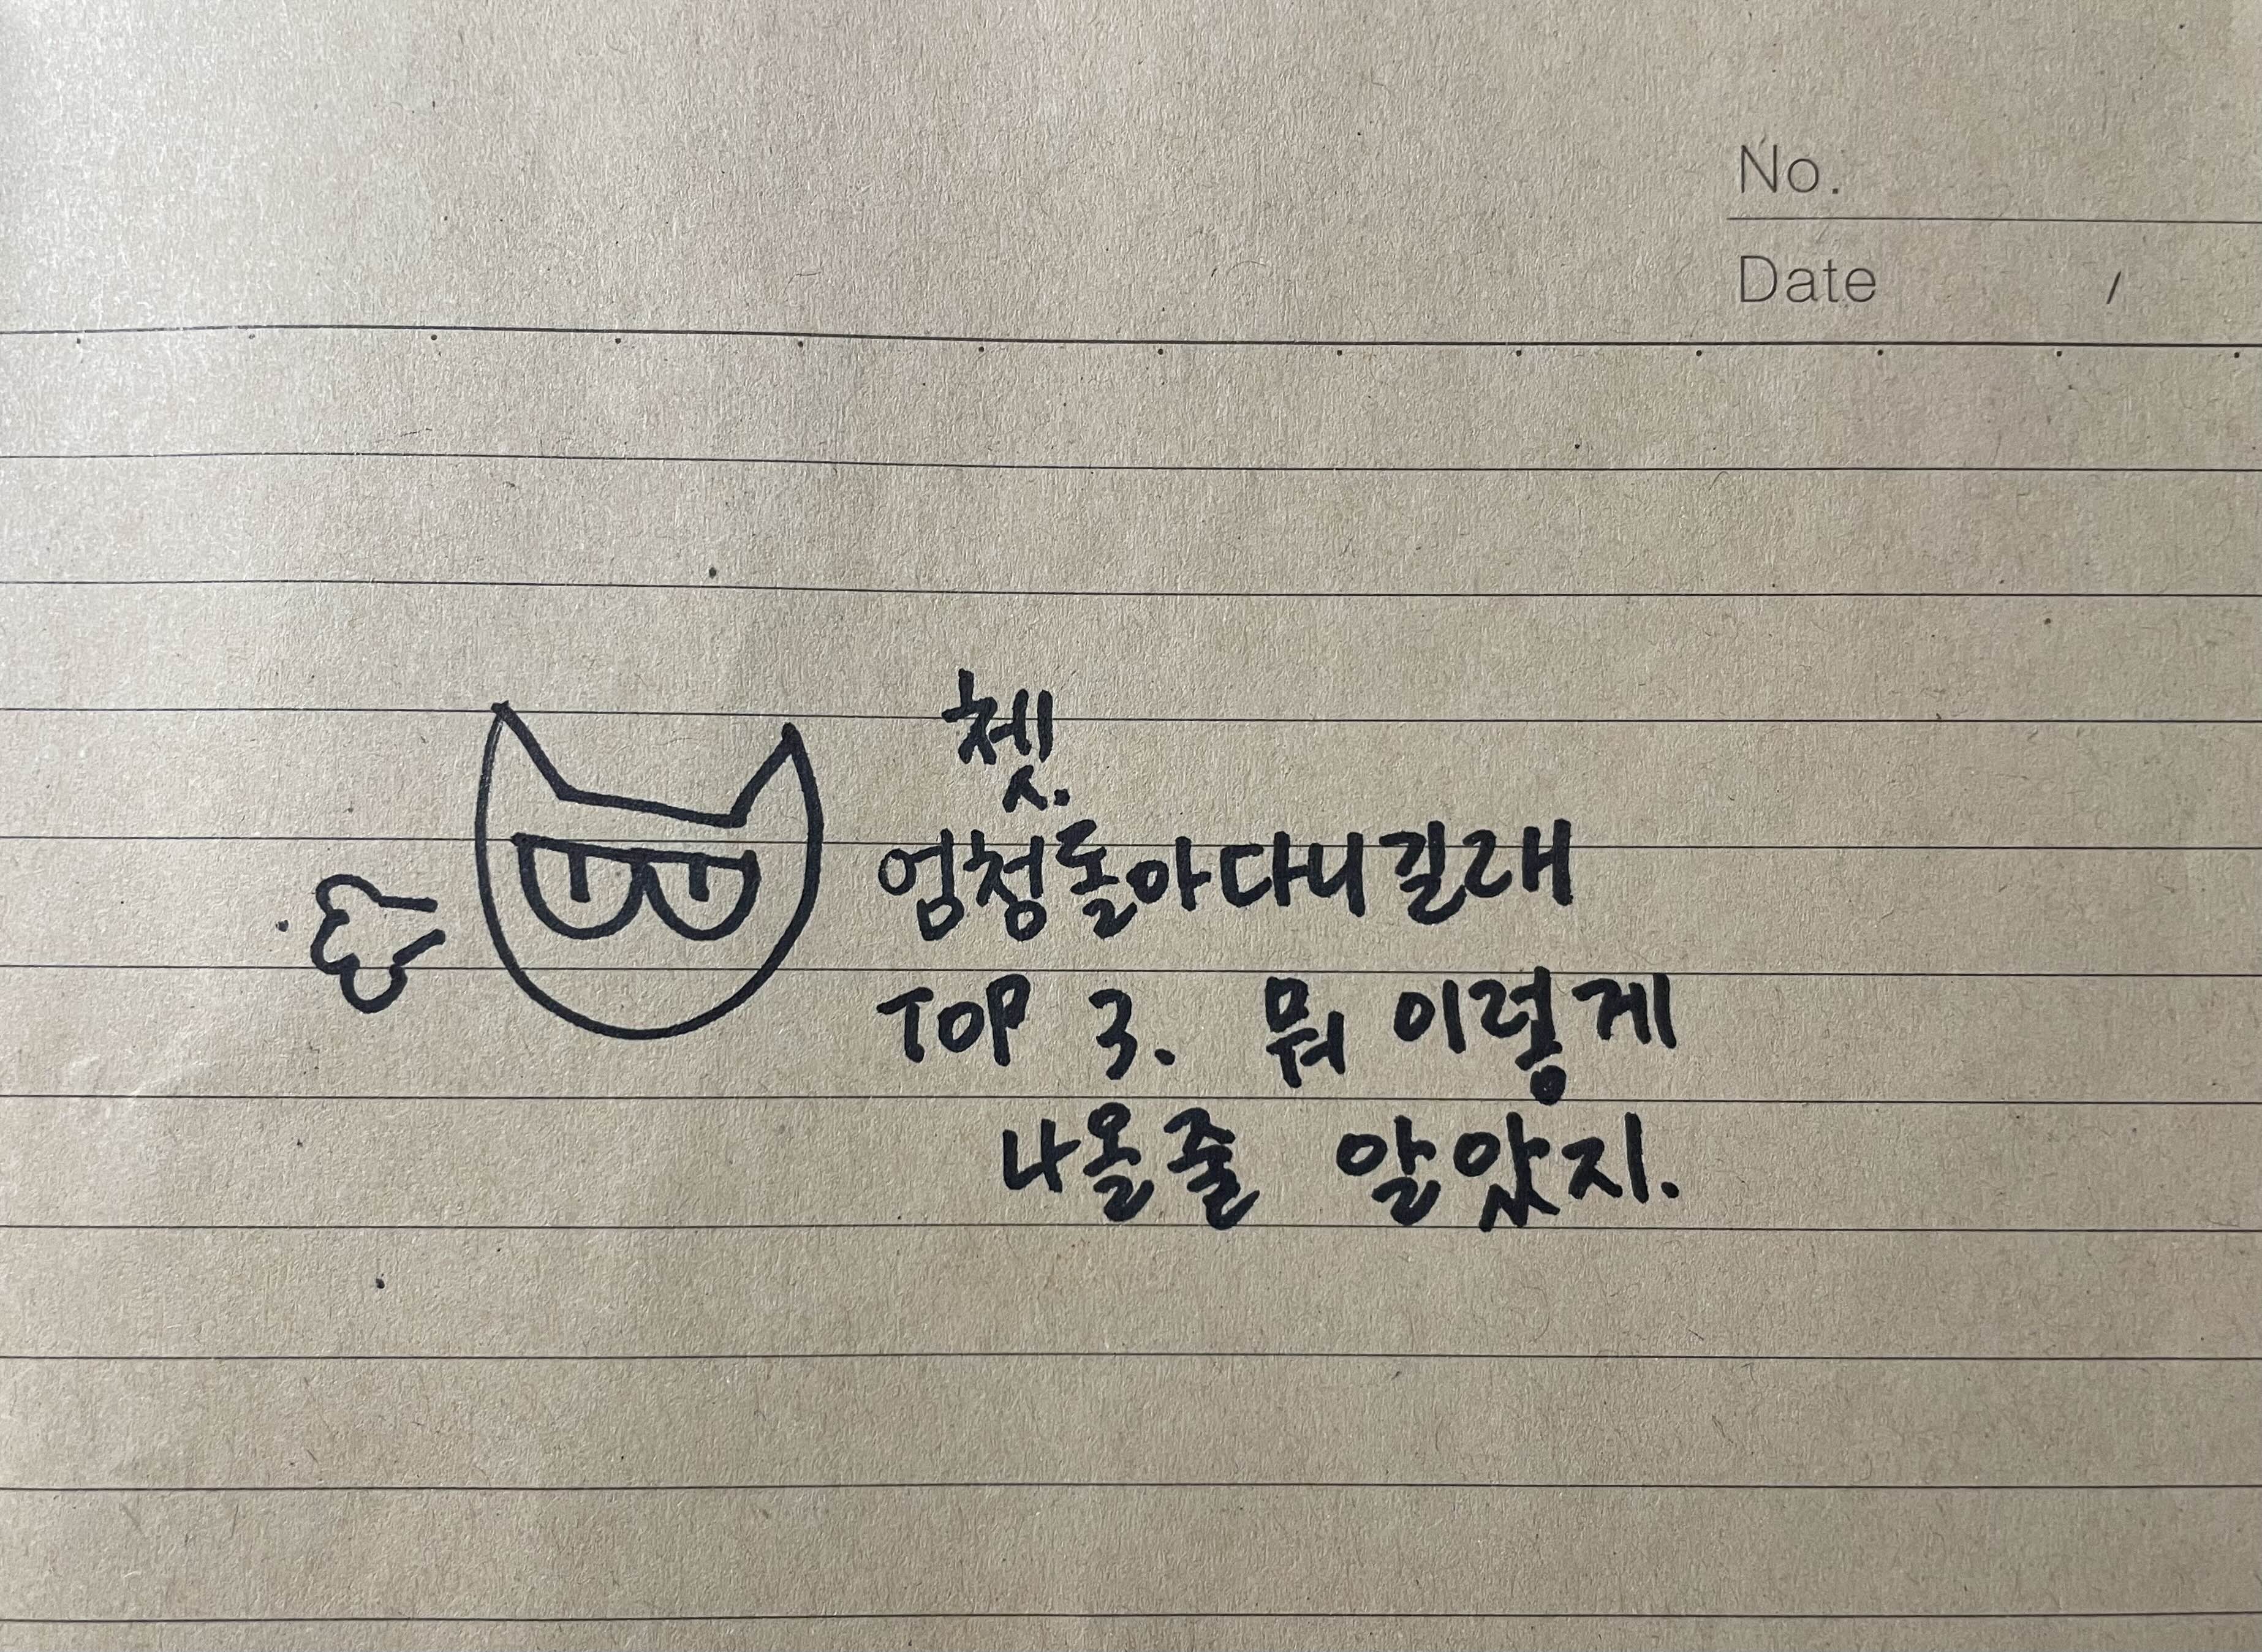 No.
Date /
쳇.
엄청돌아다니길래
TOP 3. 뭐 이렇게
나올줄 알았지.